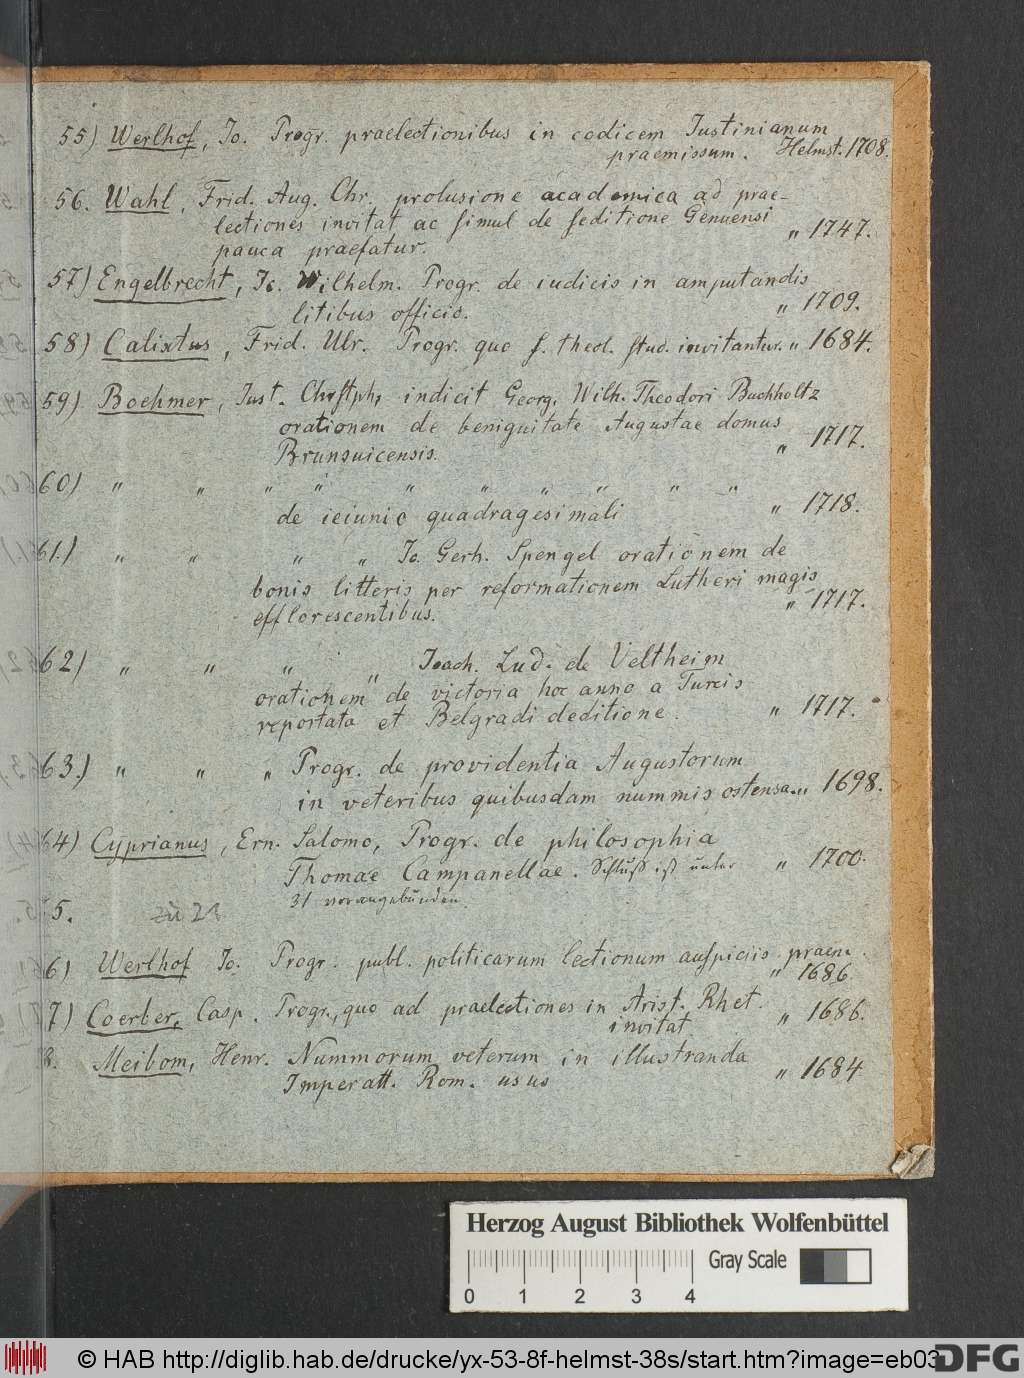 55) Werlhof, Jo. Progr. praelectionibus in codicem Iustinianum
praemissum. Helmst. 1708.
56. Wahl, Frid. Aug. Chr. prolusione academica ad prae-
lectiones invitat ac simul de seditione Genuensi
pauca praefatur. " 1747.
57) Engelbrecht, Jo. Wilhelm. Progr. de iudicis in amputandis
litibus officio. " 1709.
58) Calixtus, Frid. Ulr. Progr. quo s. theol. stud. invitantur. " 1684.
59) Boehmer, Just. Chrstph, indicit Georg. Wilh. Theodori Buchholtz
orationem de benignitate Augustae domus
Brunsuicensis. " 1717.
60) " " " " " " " " " "
de ieiunio quadragesimali " 1718.
61.) " " " " Jo. Gerh. Spengel orationem de
bonis litteris per reformationem Lutheri magis
efflorescentibus. " 1717.
62) " " " " Joach. Lud. de Veltheim
orationem de victoria hoc anno a Turcis
reportata et Belgradi deditione. " 1717.
63.) " " " Progr. de providentia Augustorum
in veteribus quibusdam nummis ostensa. " 1698.
64) Cyprianus, Ern. Salomo, Progr. de philosophia
Thomae Campanellae. Schluß ist unter " 1700.
31 vorangebunden.
5. zu 23
6) Werlhof Jo. Progr. publ. politicarum lectionum auspiciis praem.
" 1686.
7) Coerber, Casp. Progr., quo ad praelectiones in Arist. Rhet.
invitat " 1686.
8. Meibom, Henr. Nummorum veterum in illustranda
Imperatt. Rom. usus " 1684
Herzog August Bibliothek Wolfenbüttel
Gray Scale
0 1 2 3 4
© HAB http://diglib.hab.de/drucke/yx-53-8f-helmst-38s/start.htm?image=eb03
DFG